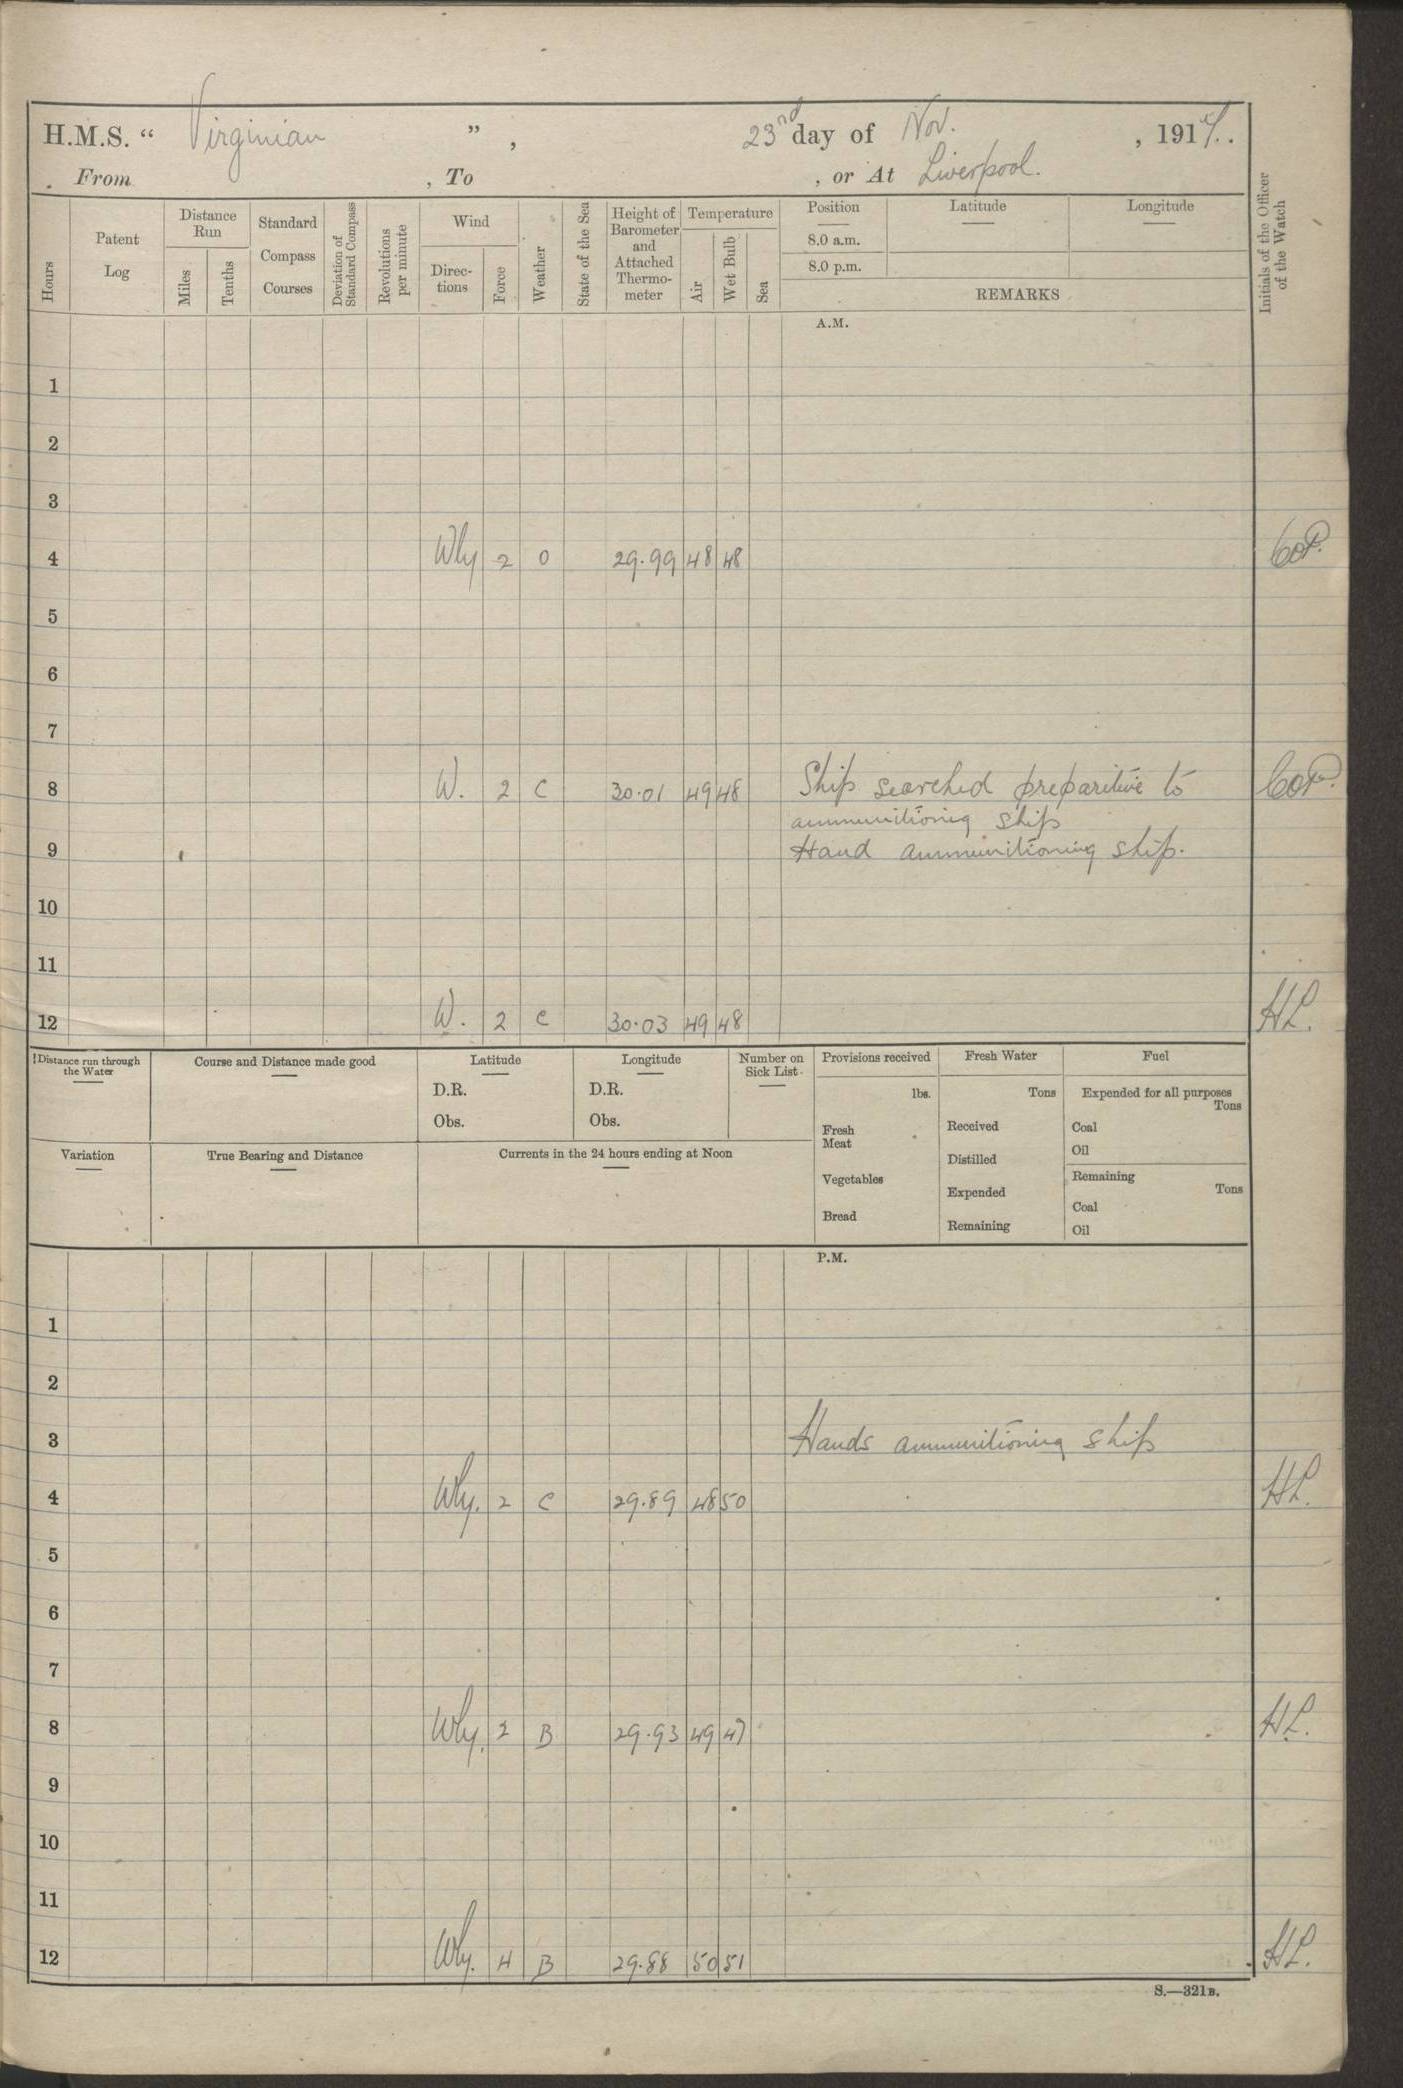 H.M.S. “ Virginian ” , 23rd day of Nov. , 1914.
From , To , or At Liverpool.
Hours
Patent Log
Distance Run
Miles
Tenths
Standard Compass Courses
Deviation of Standard Compass
Revolutions per minute
Wind
Direc-tions
Force
Weather
State of the Sea
Height of Barometer and Attached Thermo-meter
Temperature
Air
Wet Bulb
Sea
Position
8.0 a.m.
8.0 p.m.
Latitude
Longitude
REMARKS
Initials of the Officer of the Watch
A.M.
1
2
3
4 Wly 2 O 29.99 48 48
5
6
7
8 W. 2 C 30.01 49 48 Ship searched preparitive to
ammunitioning ship
9 Hand ammunitioning ship.
10
11
12 W. 2 C 30.03 49 48 HL.
Distance run through the Water
Course and Distance made good
Latitude
D.R.
Obs.
Longitude
D.R.
Obs.
Number on Sick List
Provisions received
lbs.
Fresh Meat
Vegetables
Bread
Fresh Water
Tons
Received
Distilled
Expended
Remaining
Fuel
Expended for all purposes
Tons
Coal
Oil
Remaining
Tons
Coal
Oil
Variation
True Bearing and Distance
Currents in the 24 hours ending at Noon
P.M.
1
2
3 Hands ammunitioning ship
4 Wly. 2 C 29.89 48 50 HL.
5
6
7
8 Wly. 2 B 29.93 49 47 HL.
9
10
11
12 Wly. 4 B 29.88 50 51 HL.
S.—321B.